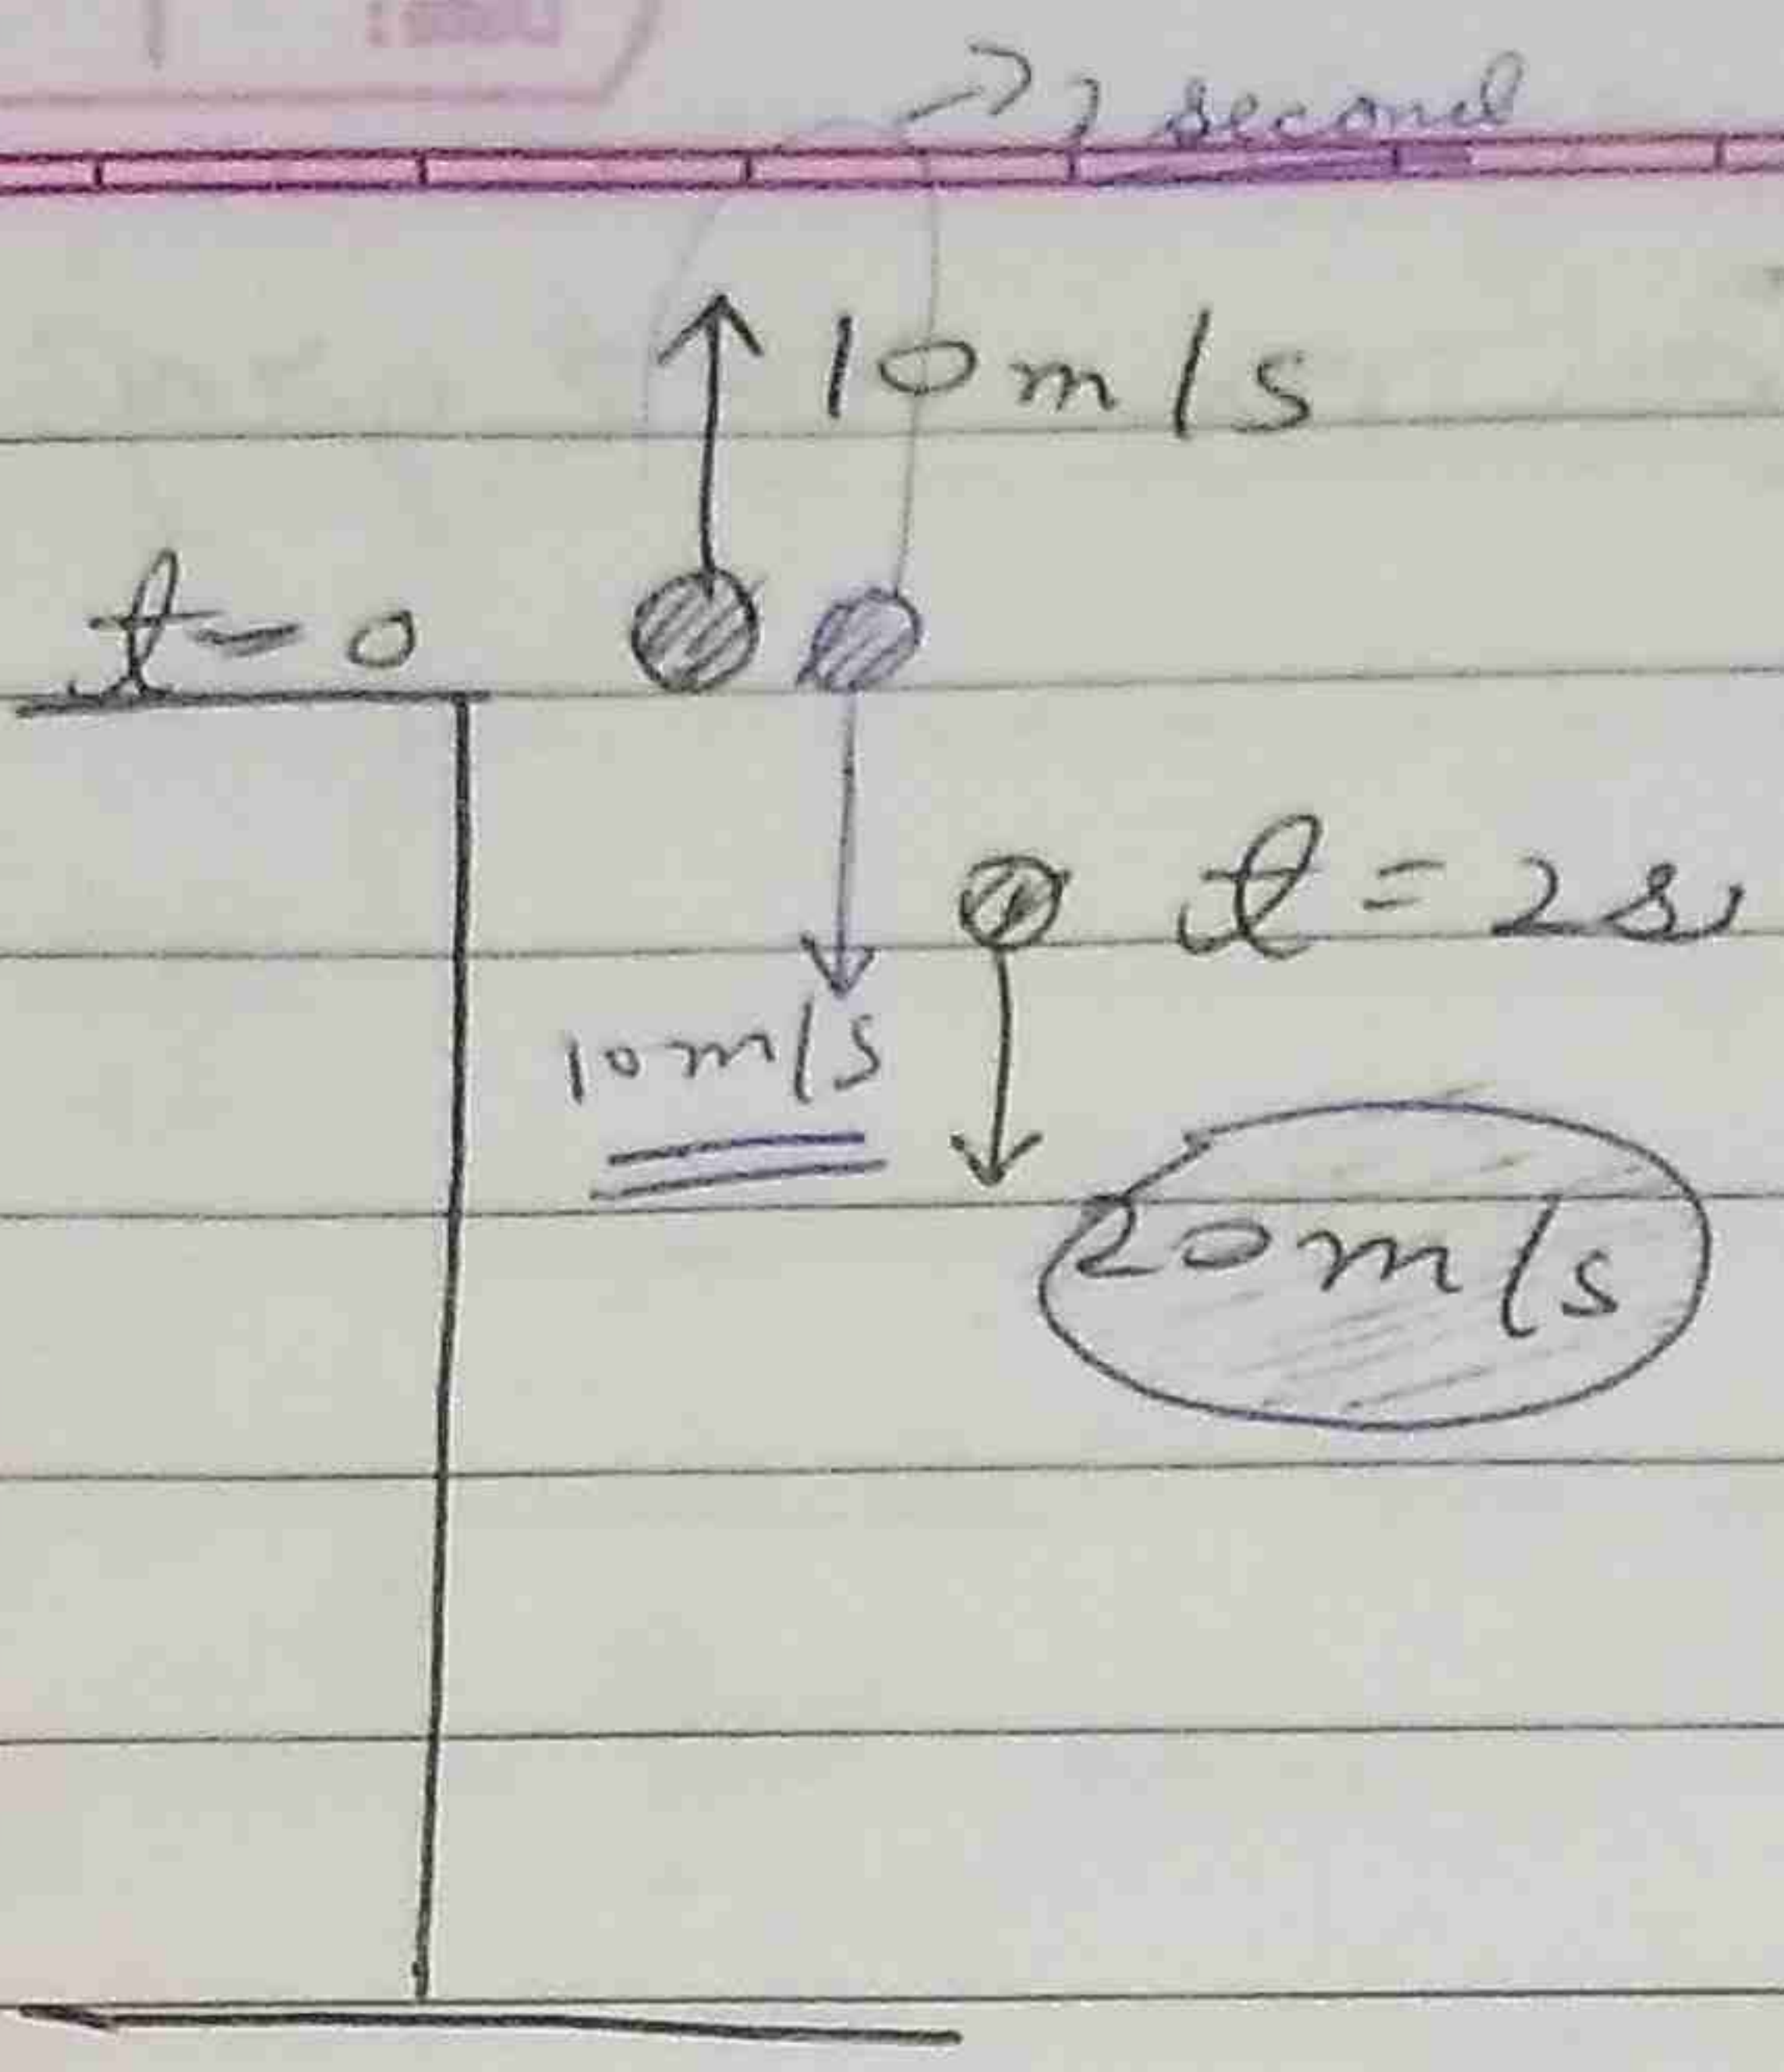 second
10m/s
t=0
t=2s
10m/s
20m/s